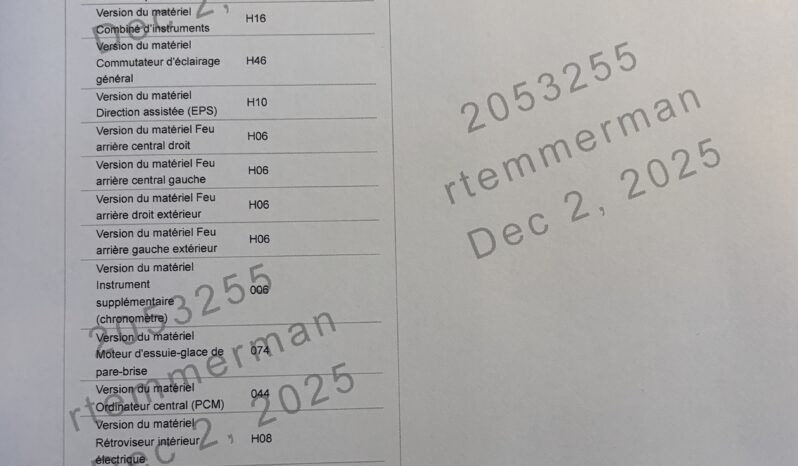 Dec 2,
Version du matériel
Combiné d'instruments
H16
Version du matériel
Commutateur d'éclairage
général
H46
Version du matériel
Direction assistée (EPS)
H10
Version du matériel Feu
arrière central droit
H06
Version du matériel Feu
arrière central gauche
H06
Version du matériel Feu
arrière droit extérieur
H06
Version du matériel Feu
arrière gauche extérieur
H06
Version du matériel
Instrument
supplémentaire
(chronomètre)
006
Version du matériel
Moteur d'essuie-glace de
pare-brise
074
Version du matériel
Ordinateur central (PCM)
044
Version du matériel
Rétroviseur intérieur
électrique
H08
2053255
rtemmerman
Dec 2, 2025
2053255
rtemmerman
Dec 2, 2025